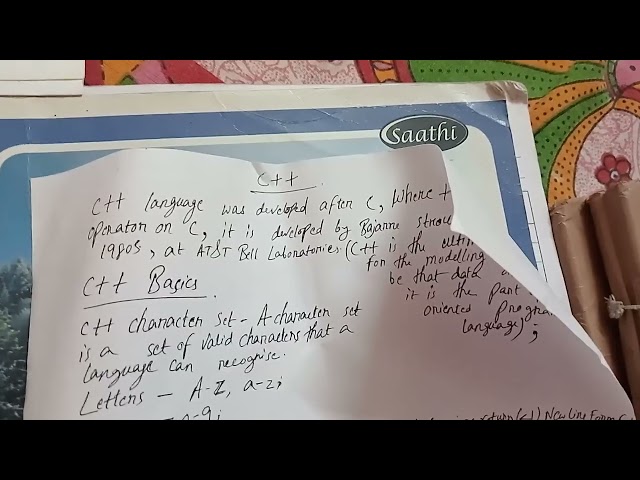 Saathi
C++
C++ language was developed after C, Where +
operator on C, it is developed by Bajanne strou
1980s, at AT&T Bell Laboratories (C++ is the
for the modelling
be that data
it is the part
oriented progra
language) ;
C++ Basics
C++ character set - A character set
is a set of valid characters that a
language can recognise.
Letters - A-Z, a-z;
-9;
New line